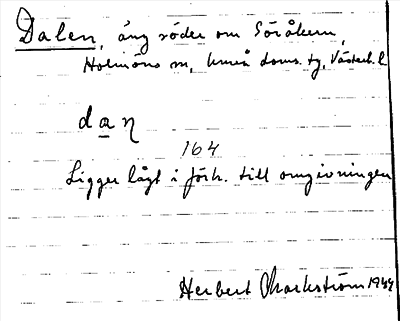 Dalen, äng söder om Söråkern,
Holmöns sn, Umeå doms. tg, Västerb. l
dan̨
164
Ligger lågt i förh. till omgivningen
Herbert Markström 1944